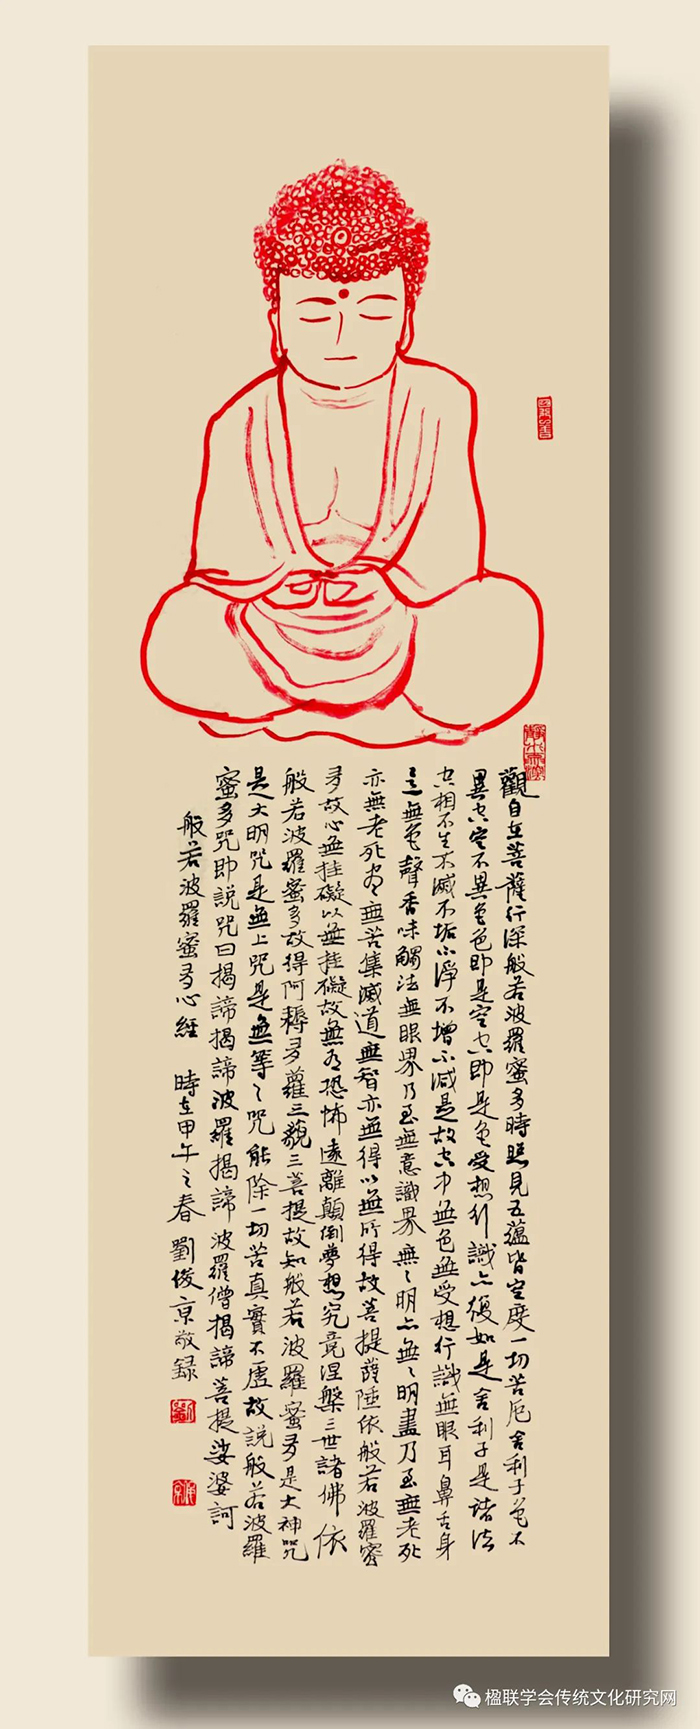 觀自在菩薩行深般若波羅蜜多時照見五蘊皆空度一切苦厄舍利子色不
異空空不異色色即是空空即是色受想行識亦復如是舍利子是諸法
空相不生不滅不垢不淨不增不減是故空中無色無受想行識無眼耳鼻舌身
意無色聲香味觸法無眼界乃至無意識界無無明亦無無明盡乃至無老死
亦無老死盡無苦集滅道無智亦無得以無所得故菩提薩埵依般若波羅蜜
多故心無挂礙以無挂礙故無有恐怖遠離顛倒夢想究竟涅槃三世諸佛依
般若波羅蜜多故得阿耨多羅三藐三菩提故知般若波羅蜜多是大神咒
是大明咒是無上咒是無等々咒能除一切苦真實不虛故說般若波羅
蜜多咒即説咒曰揭諦揭諦波羅揭諦波羅僧揭諦菩提娑婆訶
般若波羅蜜多心經 時在甲午之春劉俊京敬録
楹联学会传统文化研究网